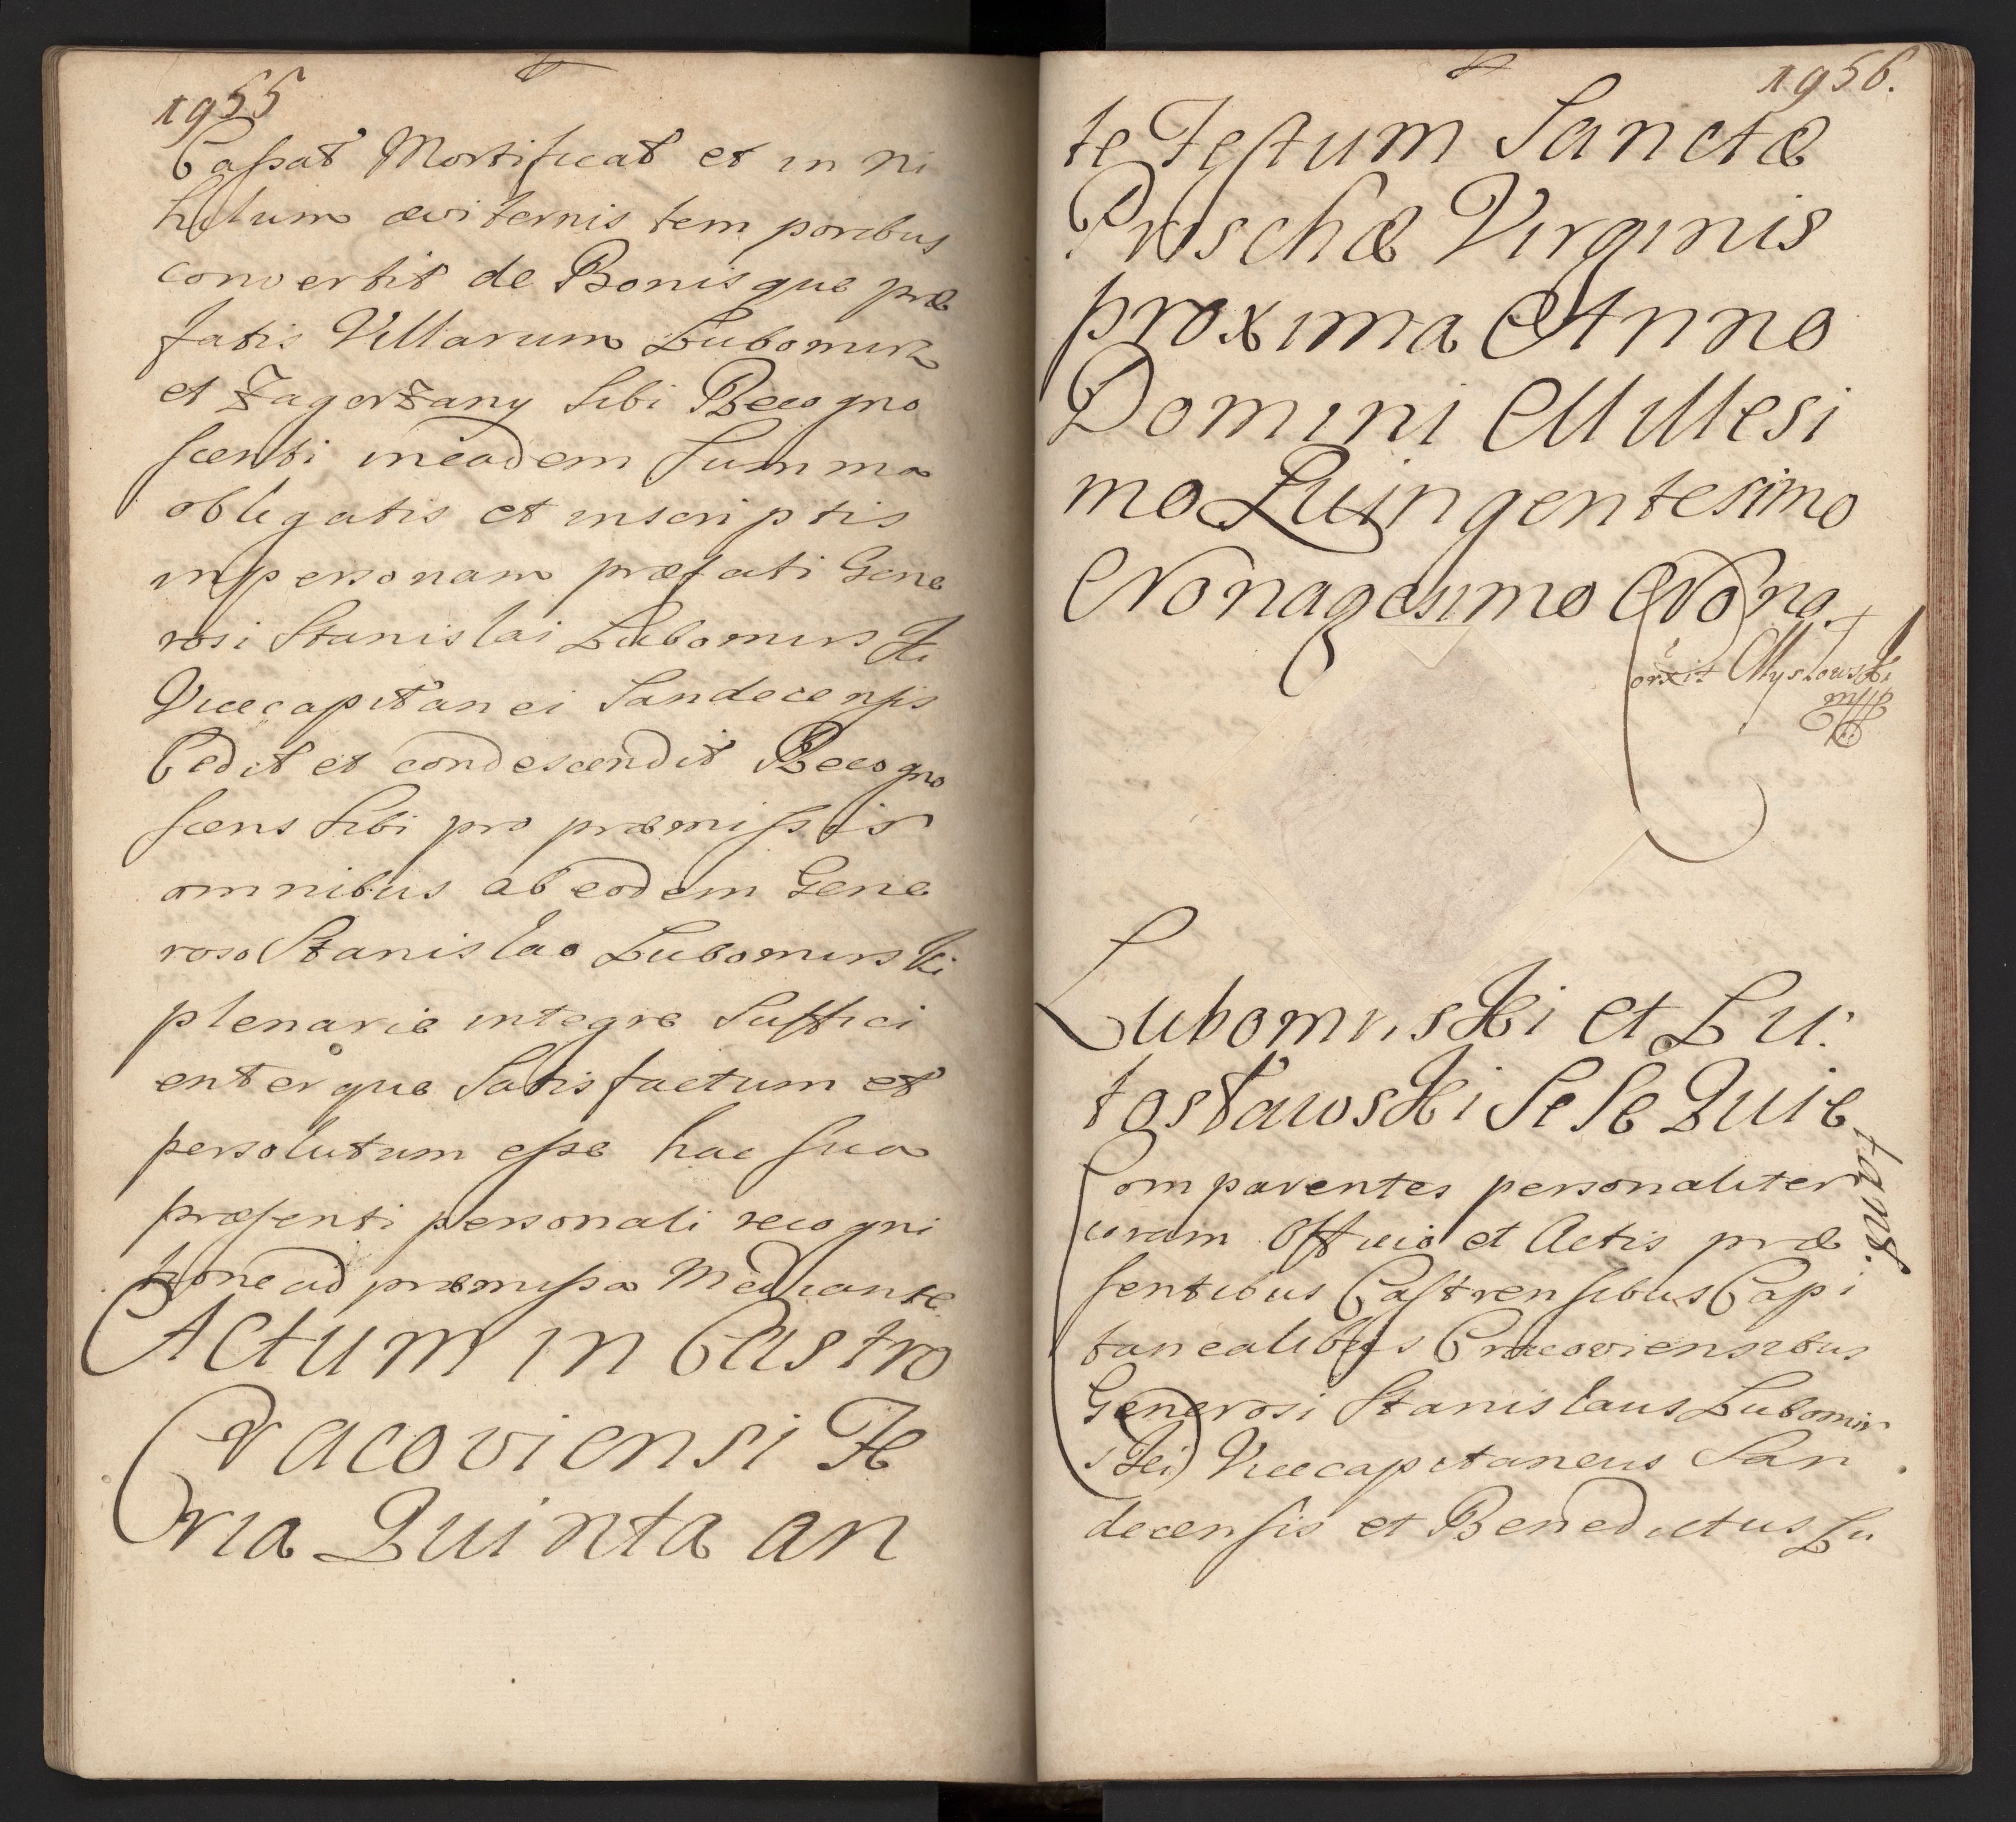 1955
Cassat Mortificat et in ni
hilum æviternis temporibus
convertit de Bonisque præ
fatis Villarum Lubomirz
et Zagorzany Sibi Recogno
scenti in eadem Summa
obligatis et inscriptis
in personam præfati Gene
rosi Stanislai Lubomirski
Vicecapitanei Sandecensis
Cedit et condescendit Recogno
scens Sibi pro præmissis
omnibus ab eodem Gene
roso Stanislao Lubomirski
plenarie integre Suffici
enterque Satisfactum et
persolutum esse hac sua
præsenti personali recogni
tione ad præmissa Mediante
Actum in Castro
Cracoviensi Fe
ria Quinta an
1956.
te Festum Sanctæ
Prischæ Virginis
proxima Anno
Domini Millesi
mo Quingentesimo
Nonagesimo Nono
Myslowski
Lubomirski et Lu:
tostawski Se Se Quie
tant.
Comparentes personaliter
coram Officio et Actis præ
sentibus Castrensibus Capi
tanealibus Cracoviensibus
Generosi Stanislaus Lubomir
ski Vicecapitaneus San
decensis et Benedictus Lu